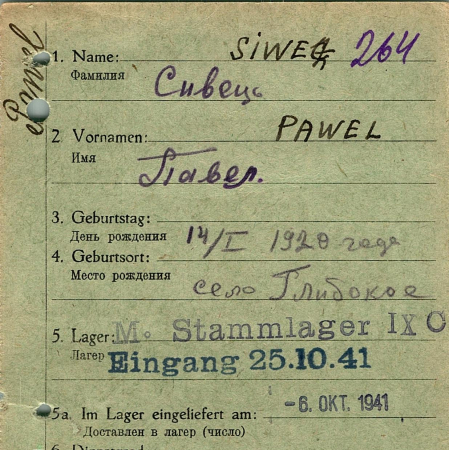 Pawel
1. Name: SiWEC 264
Фамилия Сивець
2 Vornamen: PAWEL
Имя
Павел.
3. Geburtstag:
День рождения 14/I 1920 года
4. Geburtsort:
Место рождения
село Глибокое
5. Lager: M. Stammlager IX C
Лагерь Eingang 25.10.41
5a. Im Lager eingeliefert am: -6. OKT. 1941
Доставлен в лагерь (число)